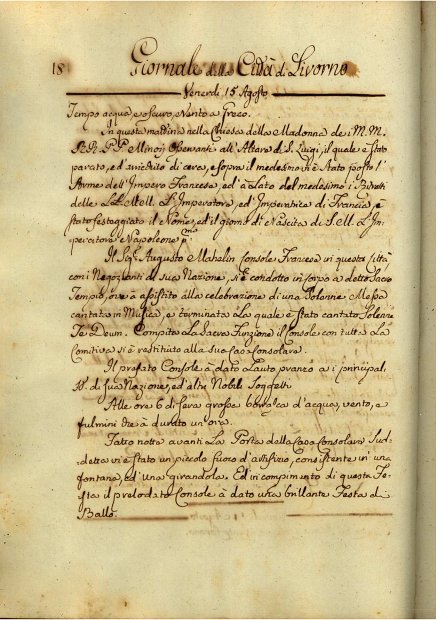 18
Giornale della Città di Livorno
Venerdì 15 Agosto
Tempo acqua, e oscuro, Vento a Greco.
In questa mattina nella Chiesa della Madonna de i M.M.
R.R. P.P. Minori Osservanti all'Altare di S. Luigi, il quale è stato
parato, ed arrichito di cera, e sopra il medesimo vi è stato posto l'
Arme dell'Impero Francese, ed a lato del medesimo i Ritratti
delle LL. MM. L'Imperatore, ed Imperatrice di Francia, è
stato festeggiato il Nome, ed il giorno di Nascita di S. M. L'Im=
peratore Napoleone p.mo
Il Sig.r Augusto Mahelin Console Francese in questa Città
con i Negozianti di sua Nazione, si è condotto in corpo a detto Sacro
Tempio, ove à assistito alla celebrazione di una Solenne Messa
cantata in Musica, e terminata la quale è stato cantato Solenne
Te Deum. Compita la Sacra Funzione il Console con tutta la
Comitiva si è restituto alla sua Casa Consolare.
Il prefato Console à dato Lauto pranzo a i principali
di sua Nazione, ed altri Nobili Soggetti
Alle ore 6 di sera grossa borasca d'acqua, vento, e
fulmini che à durato un'ora.
Fatto notte avanti la Porta della Casa Consolare Sud=
detta vi è stato un piccolo fuoco d'artifizio, consistente in una
fontana, ed una girandola. Ed in compimento di questa Fe=
sta il prelodato Console à dato una brillante Festa di
Ballo.